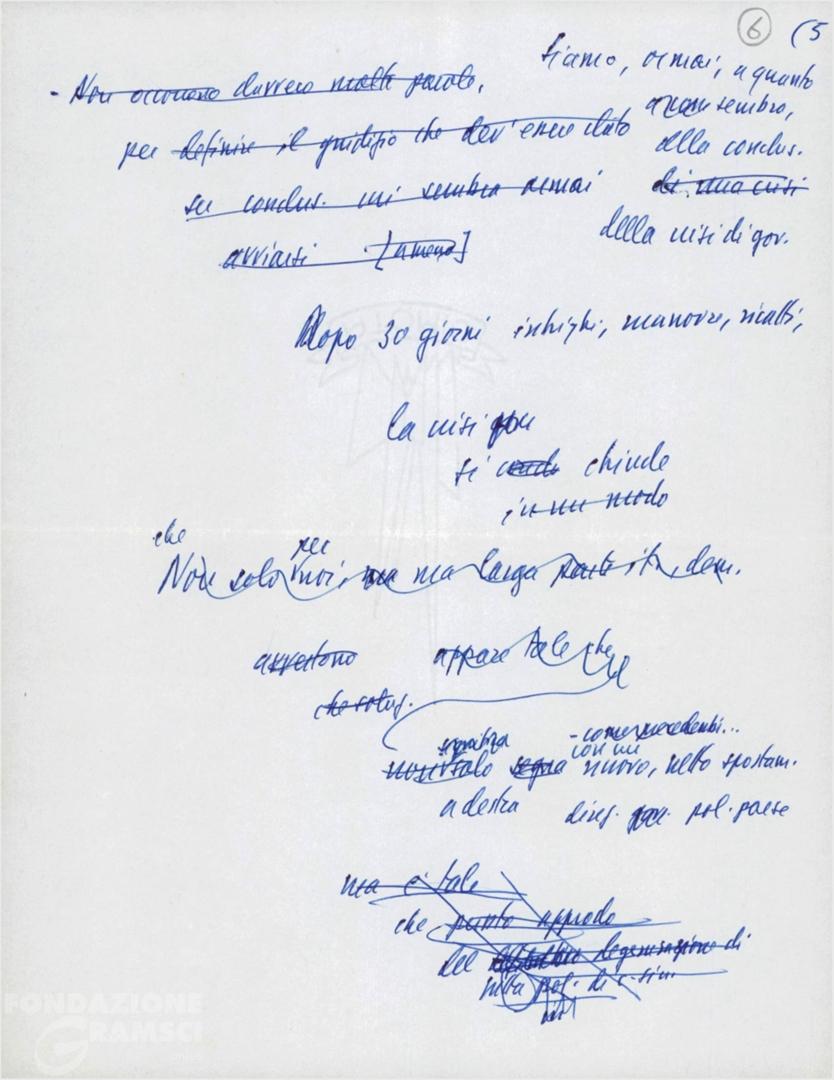 6 (5
- Non occorrono davvero molte parole,
per definire il giudizio che dev'essere dato
su conclus. mi sembra ormai
avviarsi [almeno]
siamo, ormai, a quanto
sembra,
alla conclus.
di una crisi
della crisi di gov.
Dopo 30 giorni intrighi, manovre, ricatti,
la crisi gov
si chiude
in un modo
che
Non solo per noi, ma larga parte it. dem.
avvertono
che soluz.
appare tale che
significa - come precedenti...
non solo segna con un nuovo, netto spostam.
a destra direz. pol. paese
ma è tale
che punto approdo
del degenerazione di
pol. di c-sin.
FONDAZIONE
GRAMSCI